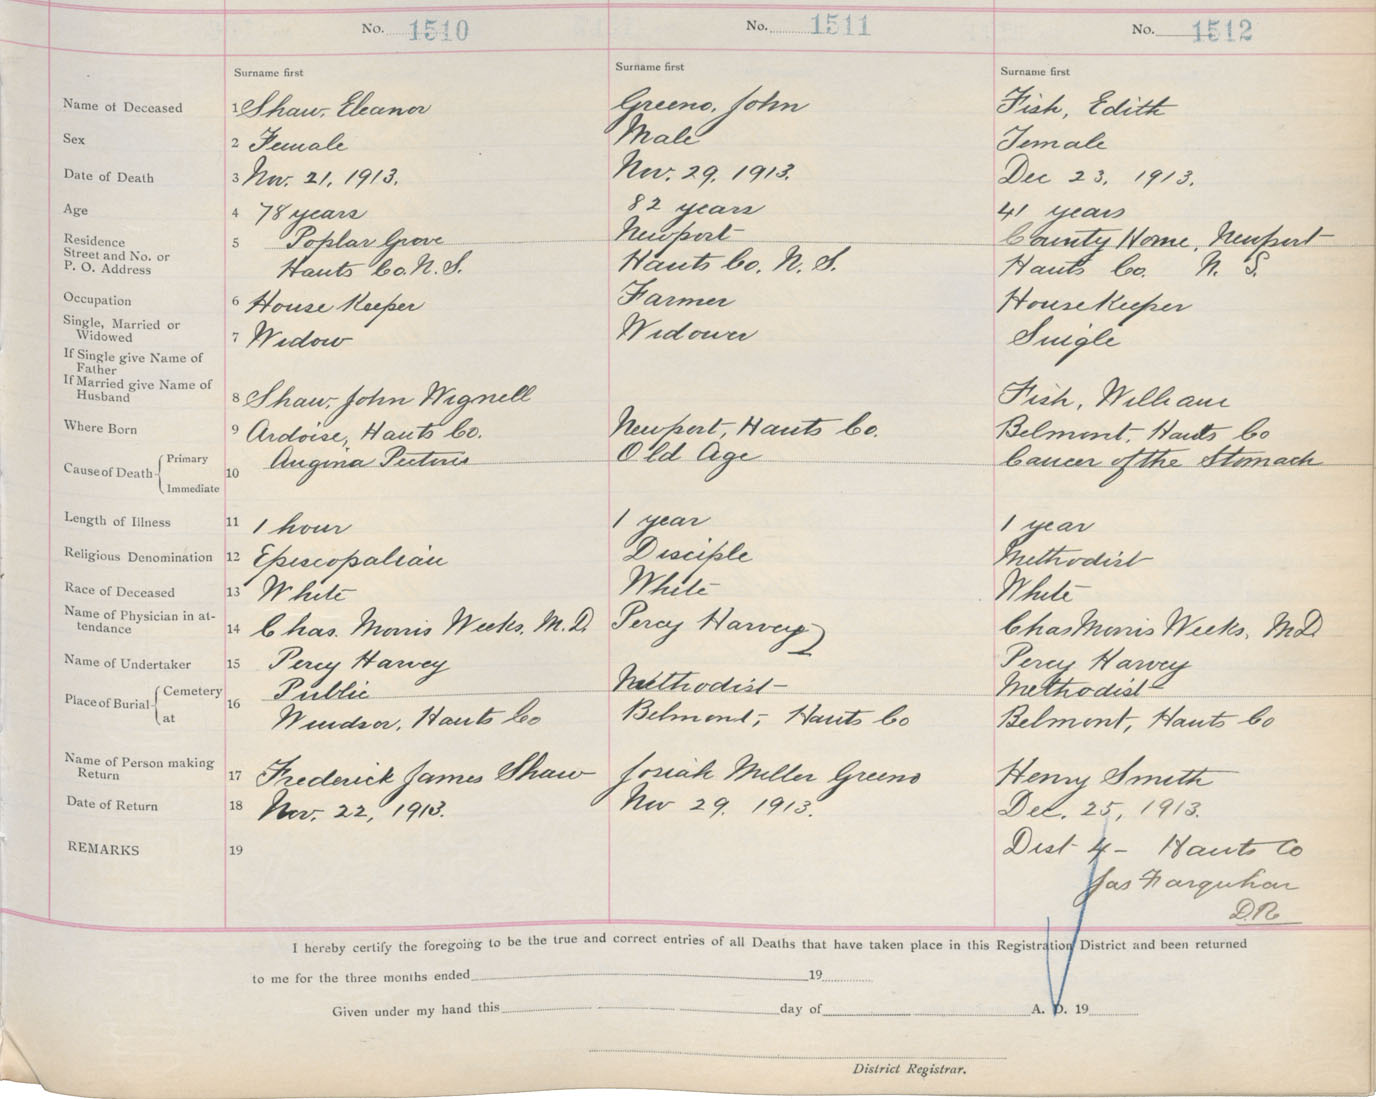 No. 1510 No. 1511 No. 1512
Surname first Surname first Surname first
Name of Deceased 1 Shaw, Eleanor Greeno, John Fish, Edith
Sex 2 Female Male Female
Date of Death 3 Nov. 21, 1913. Nov. 29, 1913. Dec 23, 1913.
Age 4 78 years 82 years 41 years
Residence 5 Poplar Grove Newport County Home, Newport
Street and No. or
P. O. Address Hants Co. N. S. Hants Co. N. S. Hants Co. N. S.
Occupation 6 House Keeper Farmer House Keeper
Single, Married or
Widowed 7 Widow Widower Single
If Single give Name of
Father
If Married give Name of
Husband 8 Shaw, John Wignell Fish, William
Where Born 9 Ardoise, Hants Co. Newport, Hants Co. Belmont, Hants Co
Cause of Death Primary Immediate 10 Angina Pectoris Old Age Cancer of the Stomach
Length of Illness 11 1 hour 1 year 1 year
Religious Denomination 12 Episcopalian Disciple Methodist
Race of Deceased 13 White White White
Name of Physician in at-
tendance 14 Chas. Morris Weeks, M.D. Percy Harvey Chas Morris Weeks, MD
Name of Undertaker 15 Percy Harvey Percy Harvey
Place of Burial Cemetery 16 Public Methodist Methodist
at Windsor, Hants Co Belmont, Hants Co Belmont, Hants Co
Name of Person making
Return 17 Frederick James Shaw Josiah Miller Greeno Henry Smith
Date of Return 18 Nov. 22, 1913. Nov 29. 1913. Dec. 25, 1913.
REMARKS 19 Dist 4 - Hants Co
Jas Farquhar
D.R.
I hereby certify the foregoing to be the true and correct entries of all Deaths that have taken place in this Registration District and been returned
to me for the three months ended 19
Given under my hand this day of A. D. 19
District Registrar.